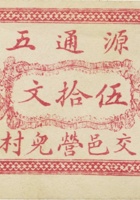 源通五
伍拾文
交邑營兒村